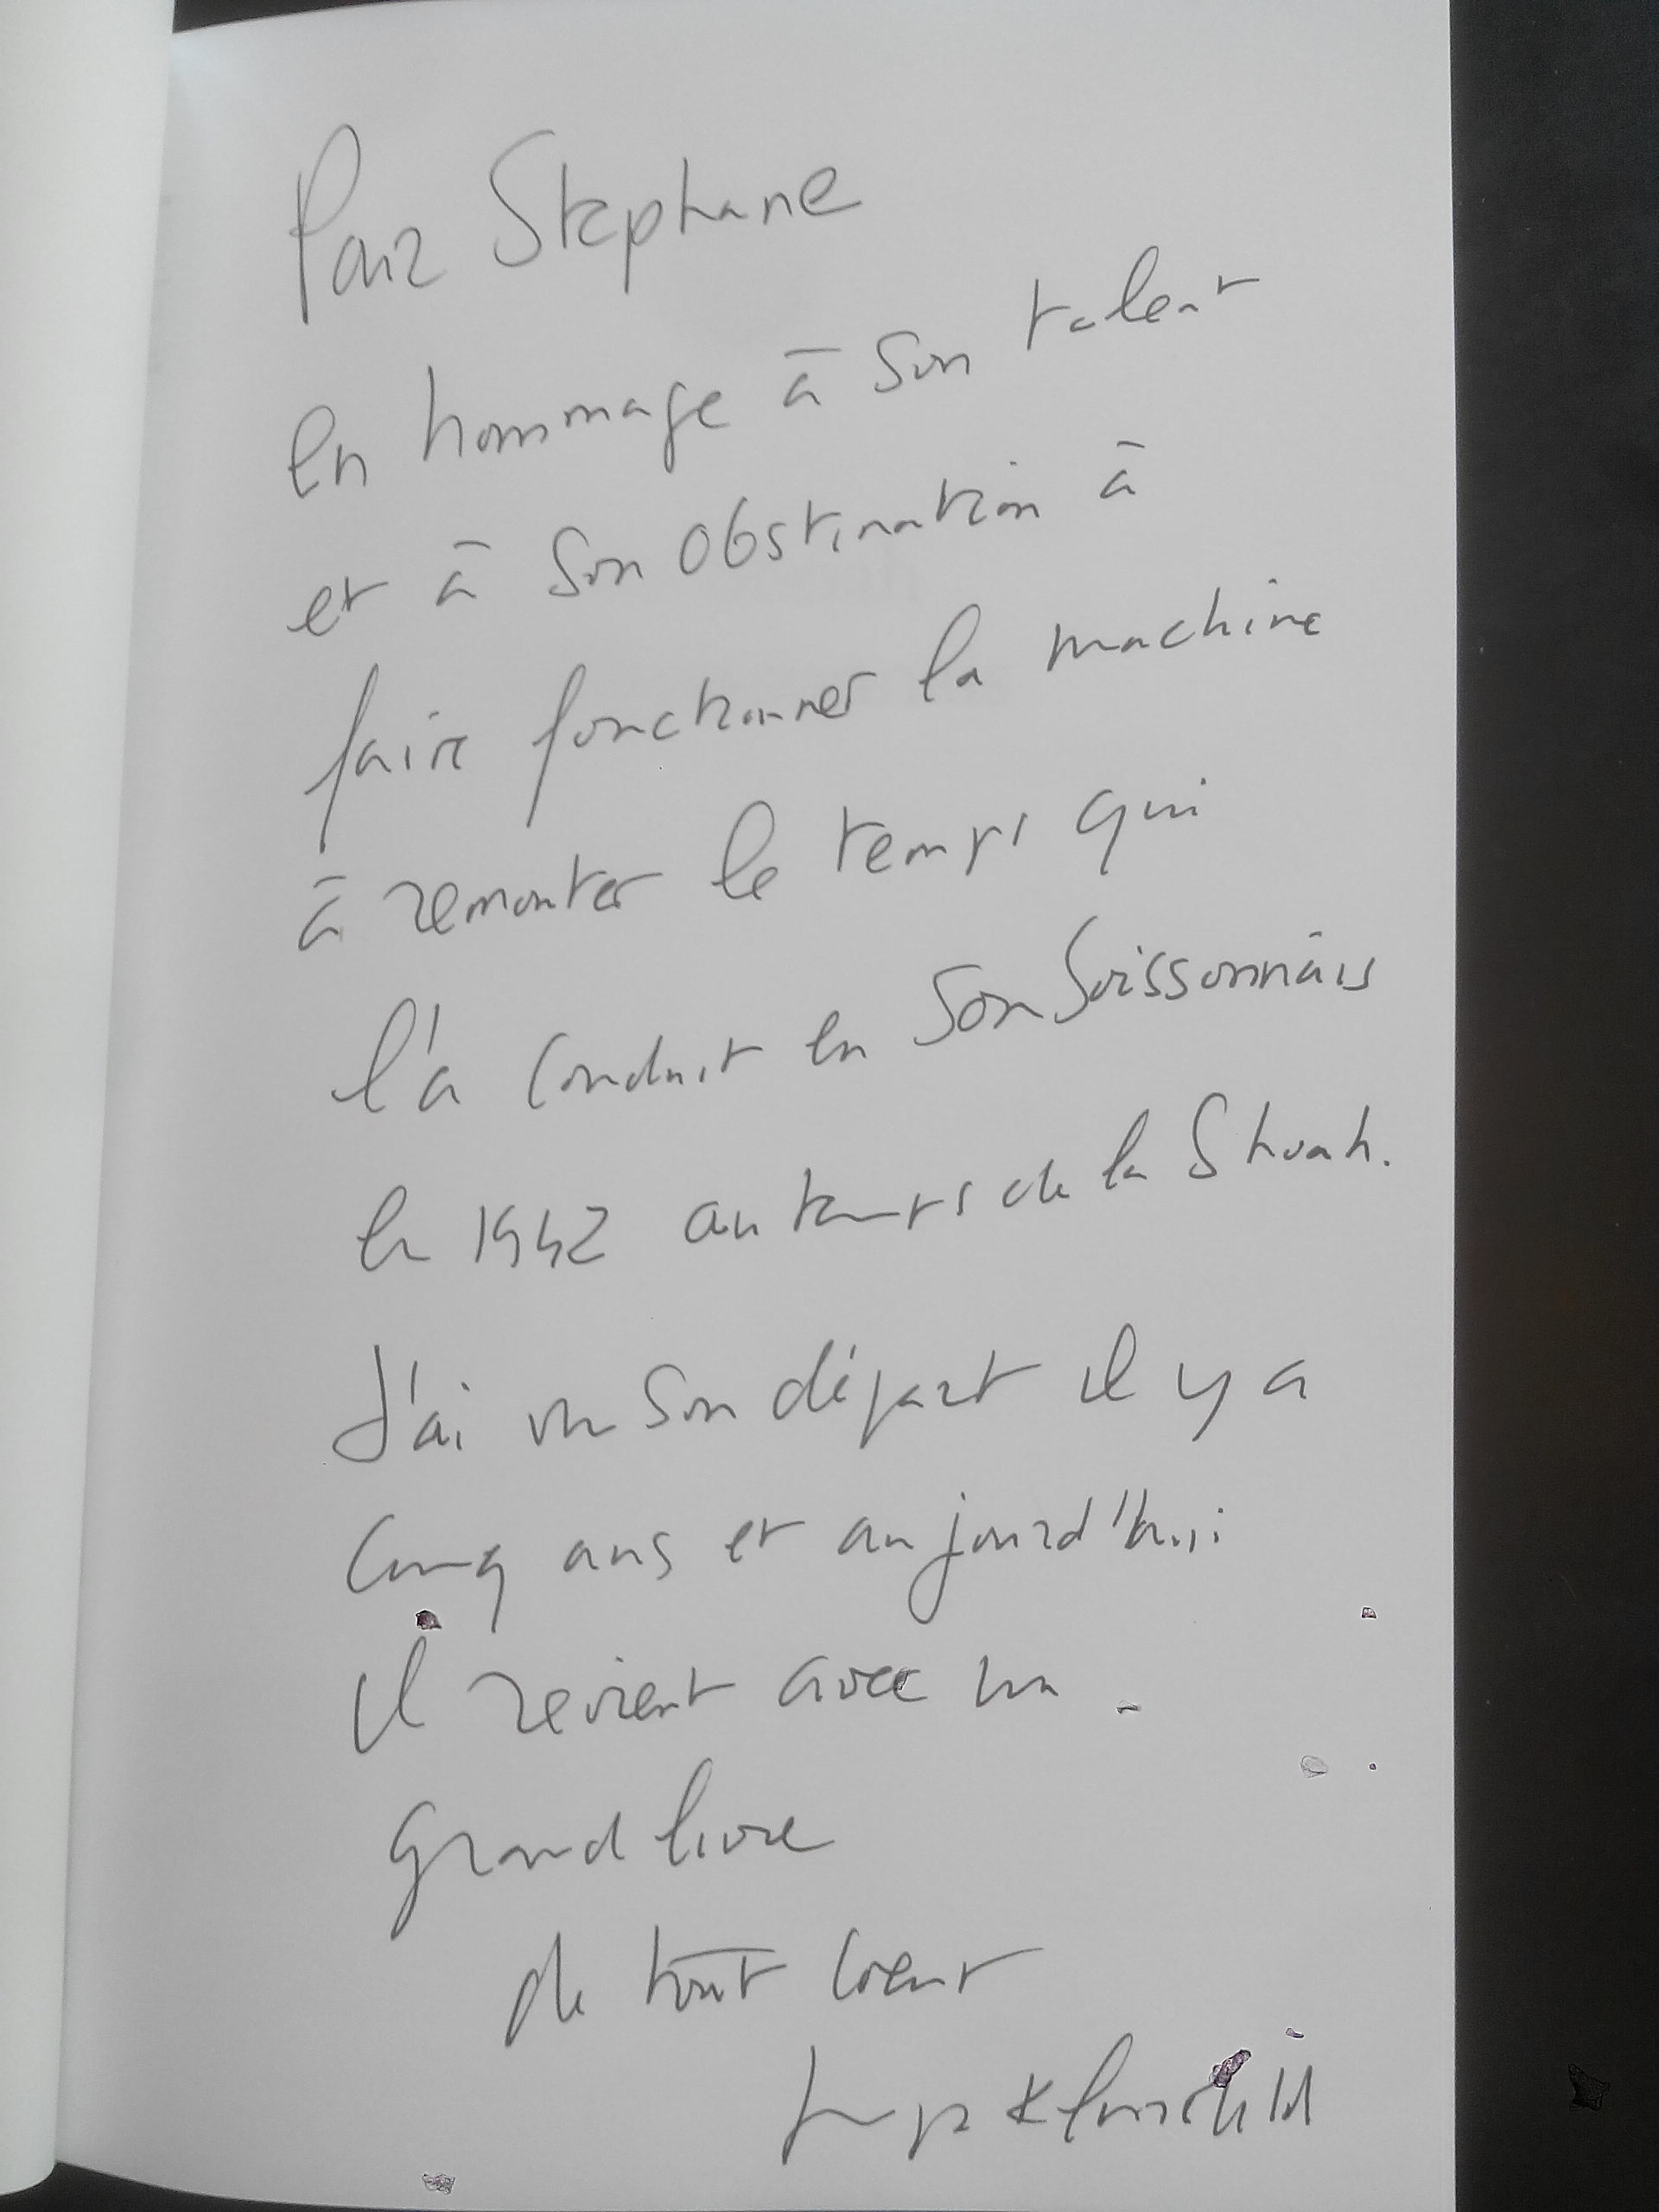 Pour Stephane
en hommage à son talent
et à son obstination à
faire fonctionner la machine
à remonter le temps qui
l'a conduit en son Soissonnais
en 1942 au temps de la Shoah.
J'ai vu son départ il y a
cinq ans et aujourd'hui
il revient avec un
grand livre
de tout cœur